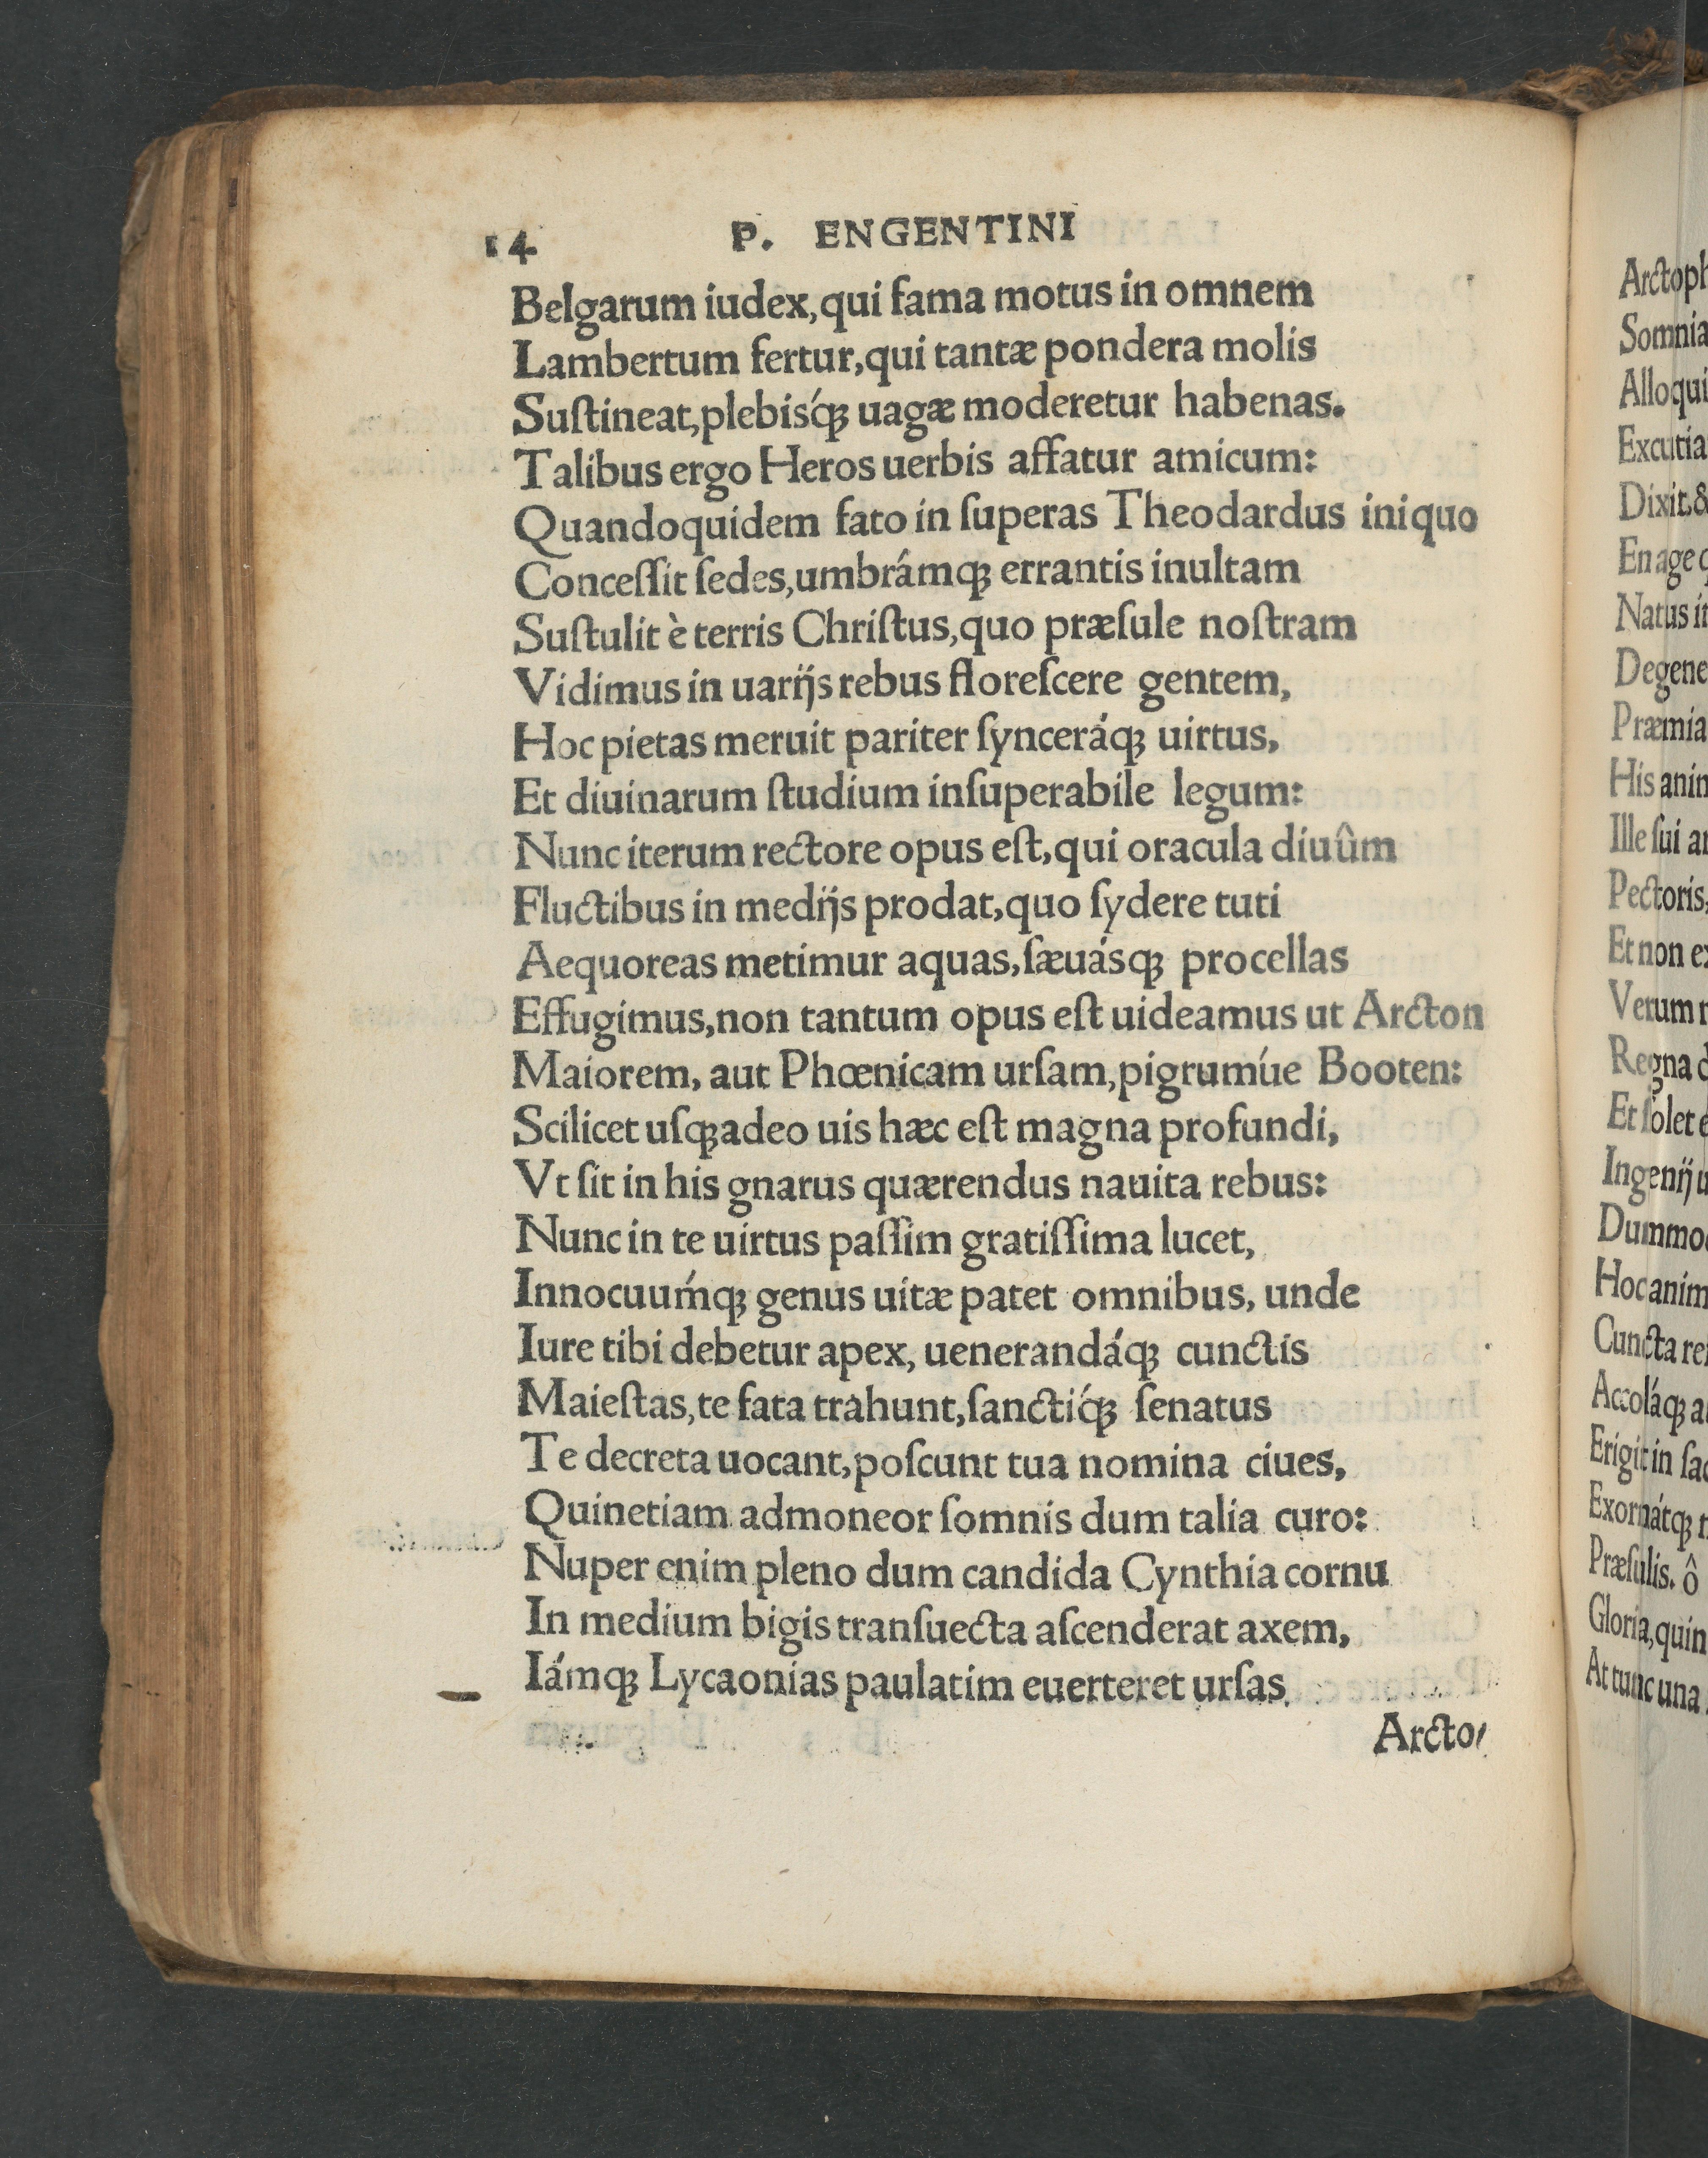 14 P. ENGENTINI
Belgarum iudex, qui fama motus in omnem
Lambertum fertur, qui tantæ pondera molis
Suſtineat, plebisq́ꝫ uagæ moderetur habenas.
Talibus ergo Heros uerbis affatur amicum:
Quandoquidem fato in ſuperas Theodardus iniquo
Conceſſit ſedes, umbrámqꝫ errantis inultam
Suſtulit è terris Chriſtus, quo præſule noſtram
Vidimus in uarijs rebus floreſcere gentem,
Hoc pietas meruit pariter ſynceráqꝫ uirtus,
Et diuinarum ſtudium inſuperabile legum:
Nunc iterum rectore opus eſt, qui oracula diuûm
Fluctibus in medijs prodat, quo ſydere tuti
Aequoreas metimur aquas, ſæuásqꝫ procellas
Effugimus, non tantum opus eſt uideamus ut Arcton
Maiorem, aut Phœnicam urſam, pigrumúe Booten:
Scilicet uſqꝫadeo uis hæc eſt magna profundi,
Vt ſit in his gnarus quærendus nauita rebus:
Nunc in te uirtus paſſim gratiſſima lucet,
Innocuuḿqꝫ genus uitæ patet omnibus, unde
Iure tibi debetur apex, uenerandáqꝫ cunctis
Maieſtas, te fata trahunt, ſanctiq́ꝫ ſenatus
Te decreta uocant, poſcunt tua nomina ciues,
Quinetiam admoneor ſomnis dum talia curo:
Nuper enim pleno dum candida Cynthia cornu
In medium bigis tranſuecta aſcenderat axem,
Iámqꝫ Lycaonias paulatim euerteret urſas,
Arcto/
Arctoph
Somnia
Alloqui
Excutia
Dixit, &
En age q
Natus it
Degene
Præmia
His anim
Ille ſui a
Pectoris,
Et non ex
Verum
Regna d
Et ſolet e
Ingenij u
Dummo
Hoc anim
Cuncta re
Accoláqꝫ a
Erigit in ſac
Exornátqꝫ
Præſulis. ô
Gloria, quin
At tunc una